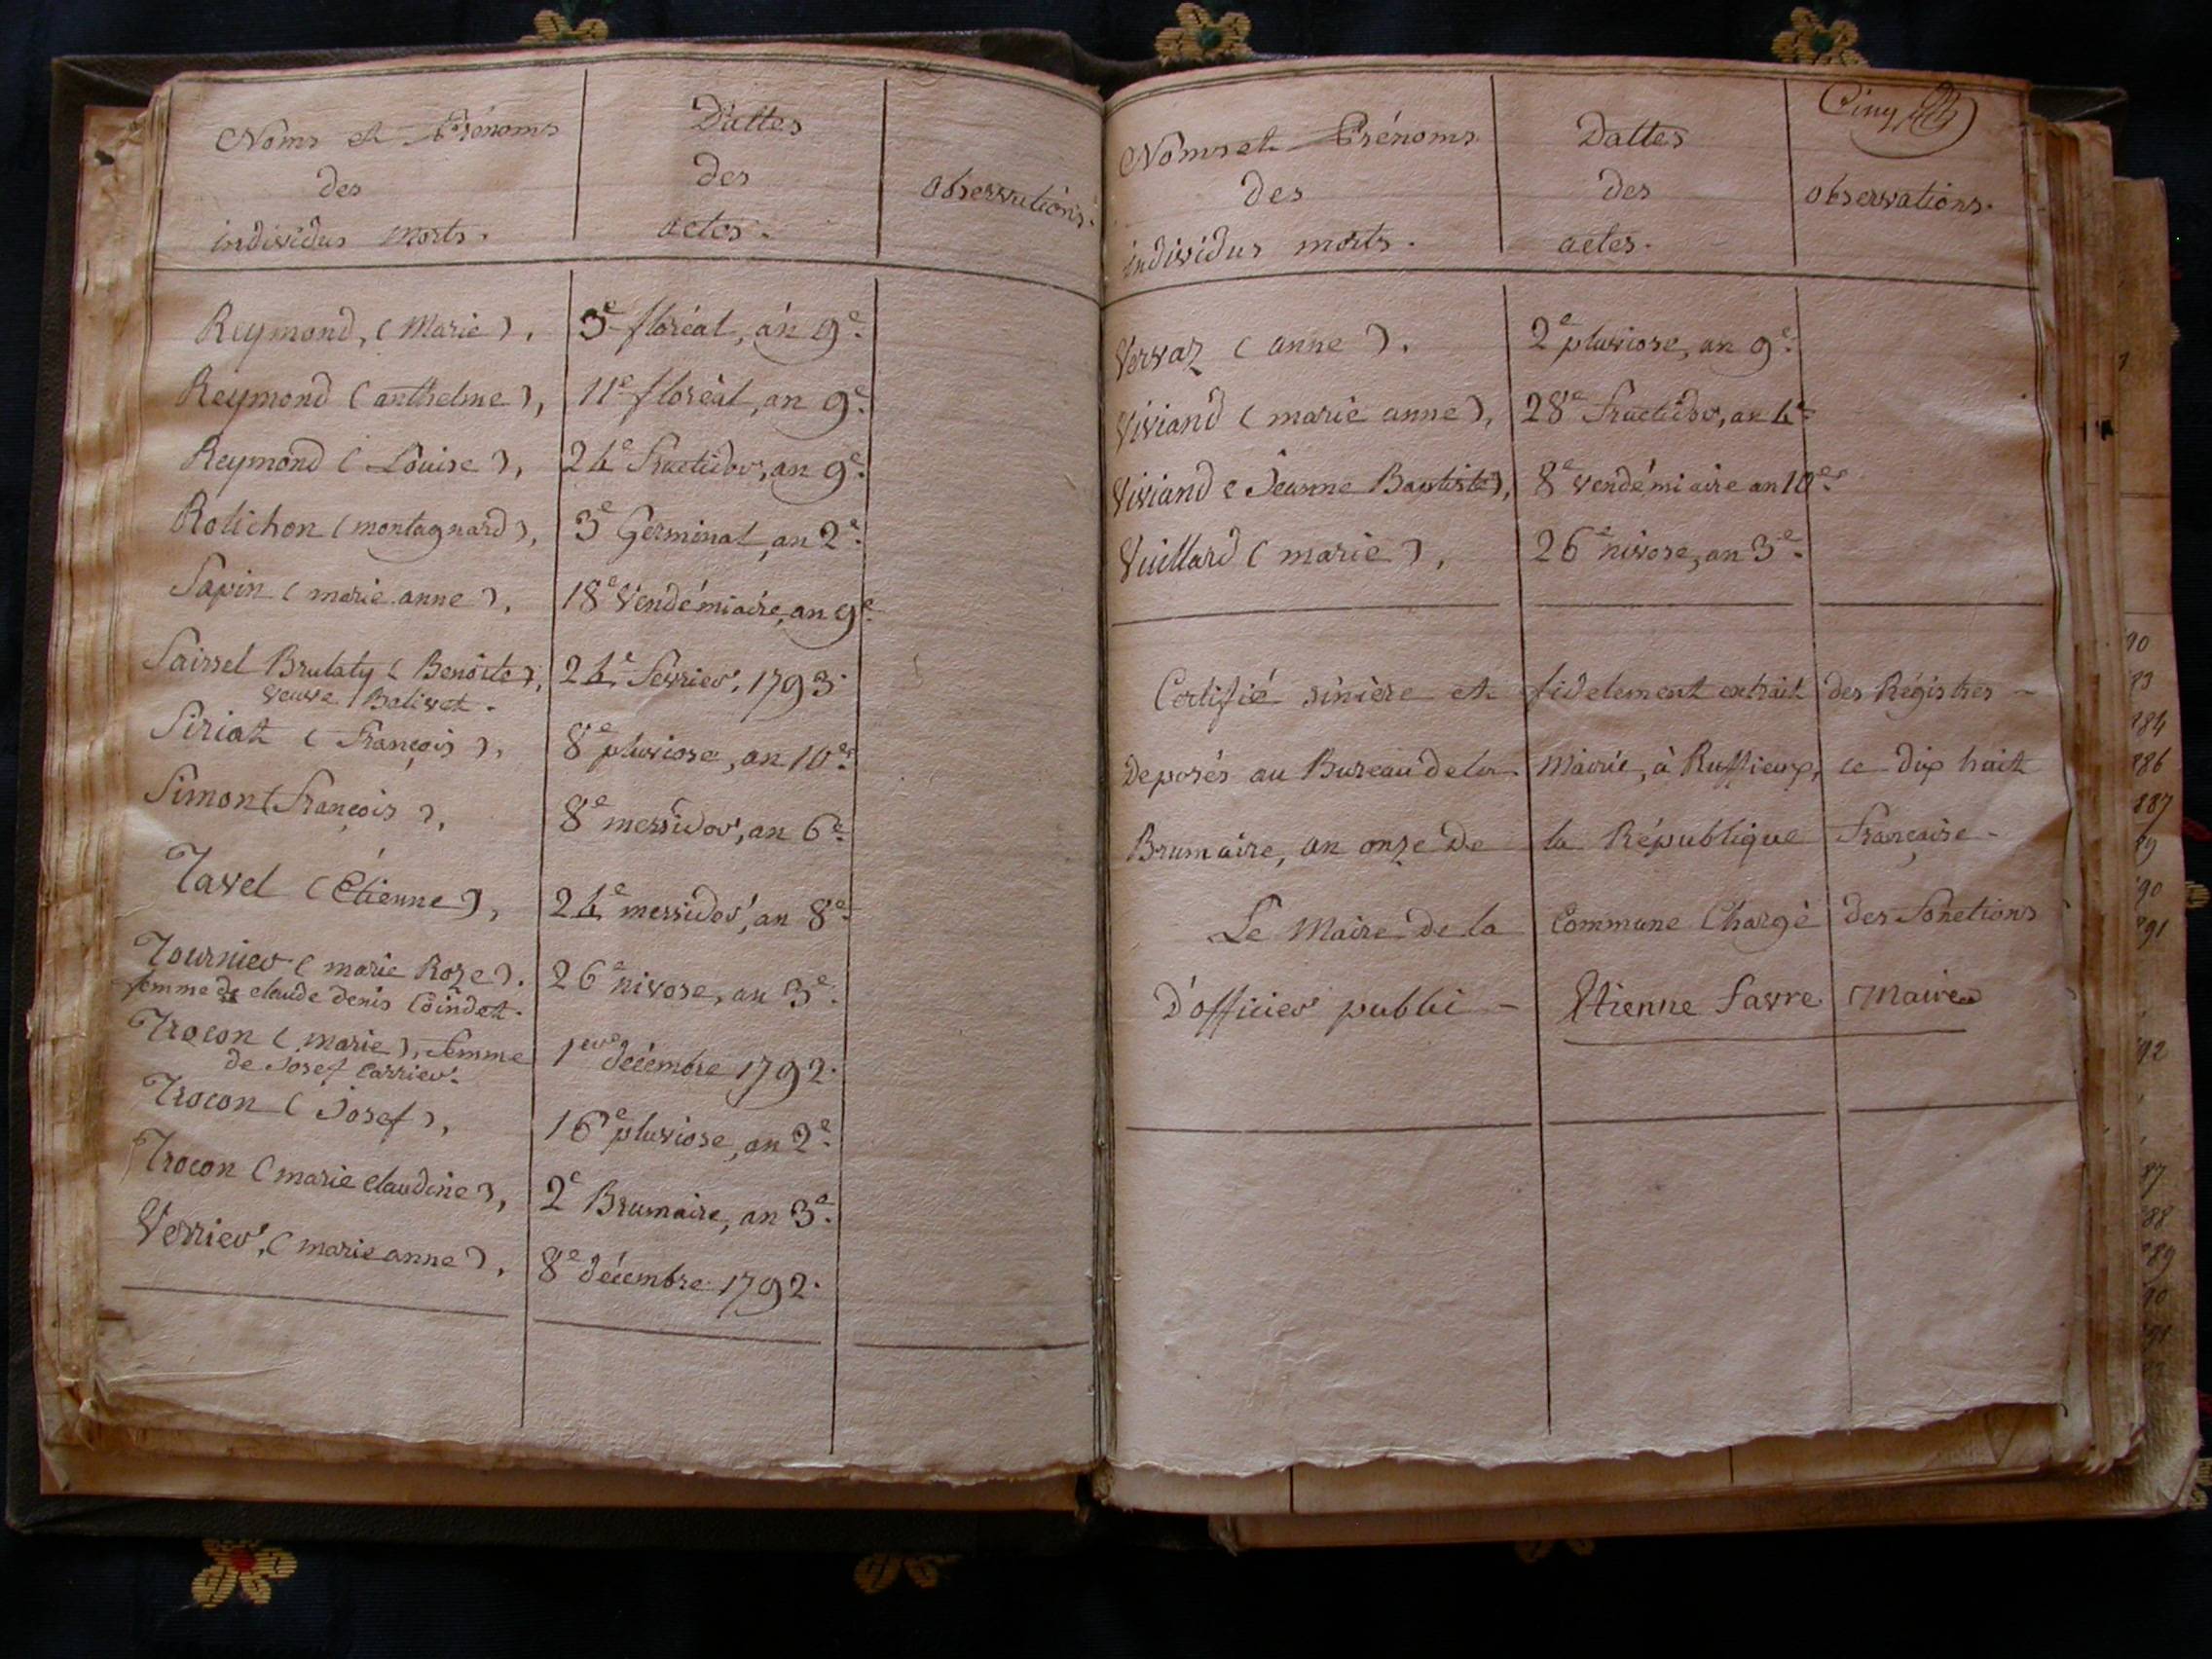 Noms et Prénoms
des
individus morts.
Dattes
des
actes.
observations.
Reymond, (Marie), 3e floréal, an 9e.
Reymond (anthelme), 11e floréal, an 9e.
Reymond (Louise), 24e Fructidor, an 9e.
Rolichon (montagnard), 3e Germinal, an 2e.
Sapin (marie anne), 18e Vendémiaire, an 9e.
Saissel Brulaty (Benoite), 24e Fevrier, 1793.
veuve Balivet.
Siriat (François), 8e pluviose, an 10e.
Simon (François), 8e messidor, an 6e.
Tavel (Étienne), 24e messidor, an 8e.
Tournier (marie Roze). 26e nivose, an 3e.
femme de claude denis Coindet.
Trocon (marie), femme 1er décembre 1792.
de Josef Carrier.
Trocon (Josef), 16e pluviose, an 2e.
Trocon (marie claudine), 2e Brumaire, an 3e.
Verrier, (marie anne), 8e décembre 1792.
Cinq
Noms et Prénoms
des
individus morts.
Dattes
des
actes.
observations.
Vervaz (anne). 2e pluviose, an 9e.
Viviand (marie anne), 28e Fructidor, an 4e.
Viviand (Jeanne Baptiste), 8e vendémiaire an 10e.
Vuillard (marie), 26e nivose, an 3e.
Certifié sinière et fidelement extrait des Régistres
deposés au Bureau de la Mairie, à Ruffieux, le dix huit
Brumaire, an onze de la République Française
Le Maire de la Commune Chargé des Fonctions
D'officier publi Etienne Favre Maire
90
93
884
886
887
89
90
891
92
87
88
89
90
91